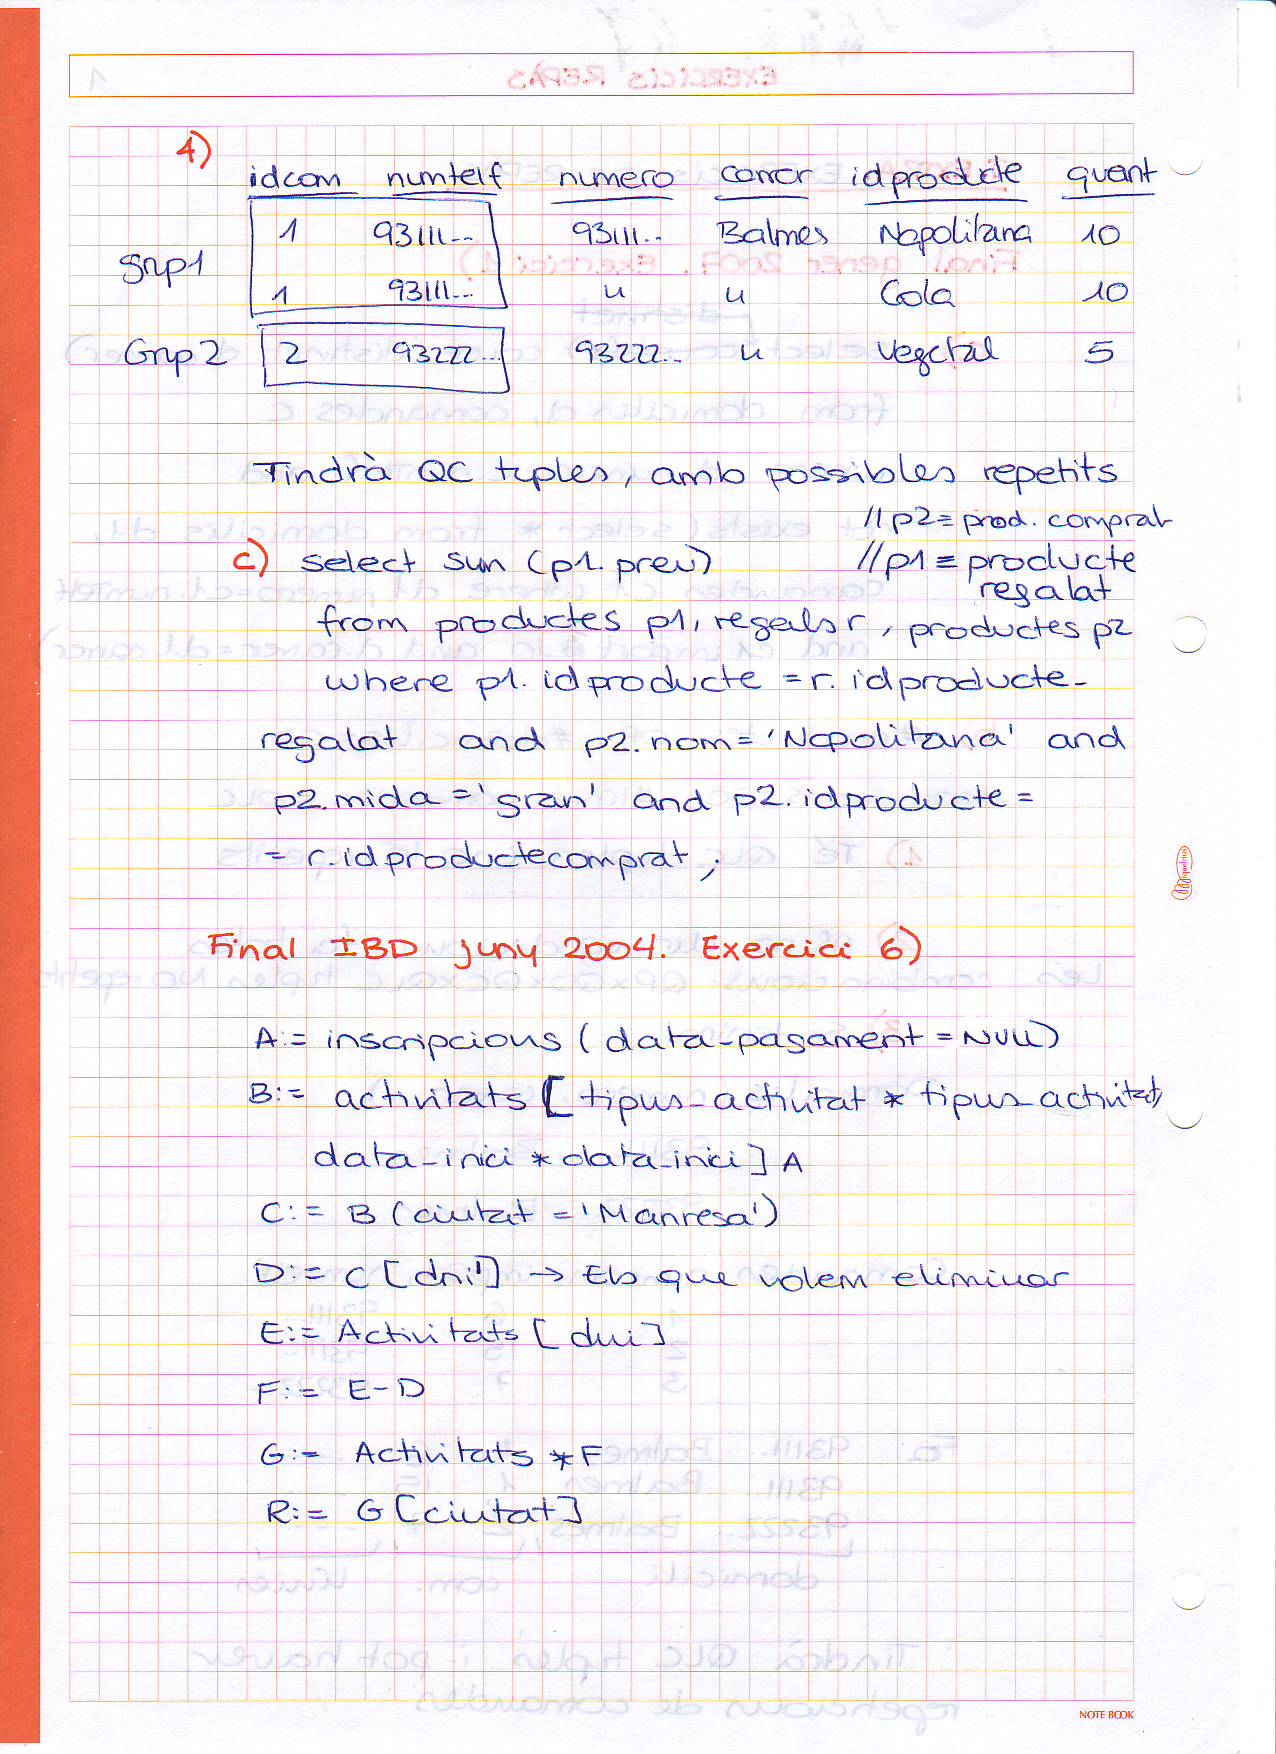 4)
idcom numtelf numero carrer idproducte quant
Grup1 1 93111... 93111.. Balmes Napolitana 10
1 93111... " " Cola 10
Grup 2 2 93222... 93222.. " Vegetal 5
Tindrà QC tuples, amb possibles repetits
//p2 = prod. comprat
c) select sum (p1.preu) //p1 = producte
regalat
from productes p1, regals r, productes p2
where p1.idproducte = r.idproducte-
regalat and p2.nom = 'Napolitana' and
p2.mida = 'gran' and p2.idproducte =
= r.idproductecomprat;
Final IBD juny 2004. Exercici 6)
A:= inscripcions (data-pagament = NULL)
B:= activitats [tipus-activitat * tipus-activitat,
data-inici * data-inici] A
C:= B (ciutat = 'Manresa')
D:= C [dni'] → Els que volem eliminar
E:= Activitats [dni]
F:= E-D
G:= Activitats * F
R:= G [ciutat]
NOTE BOOK